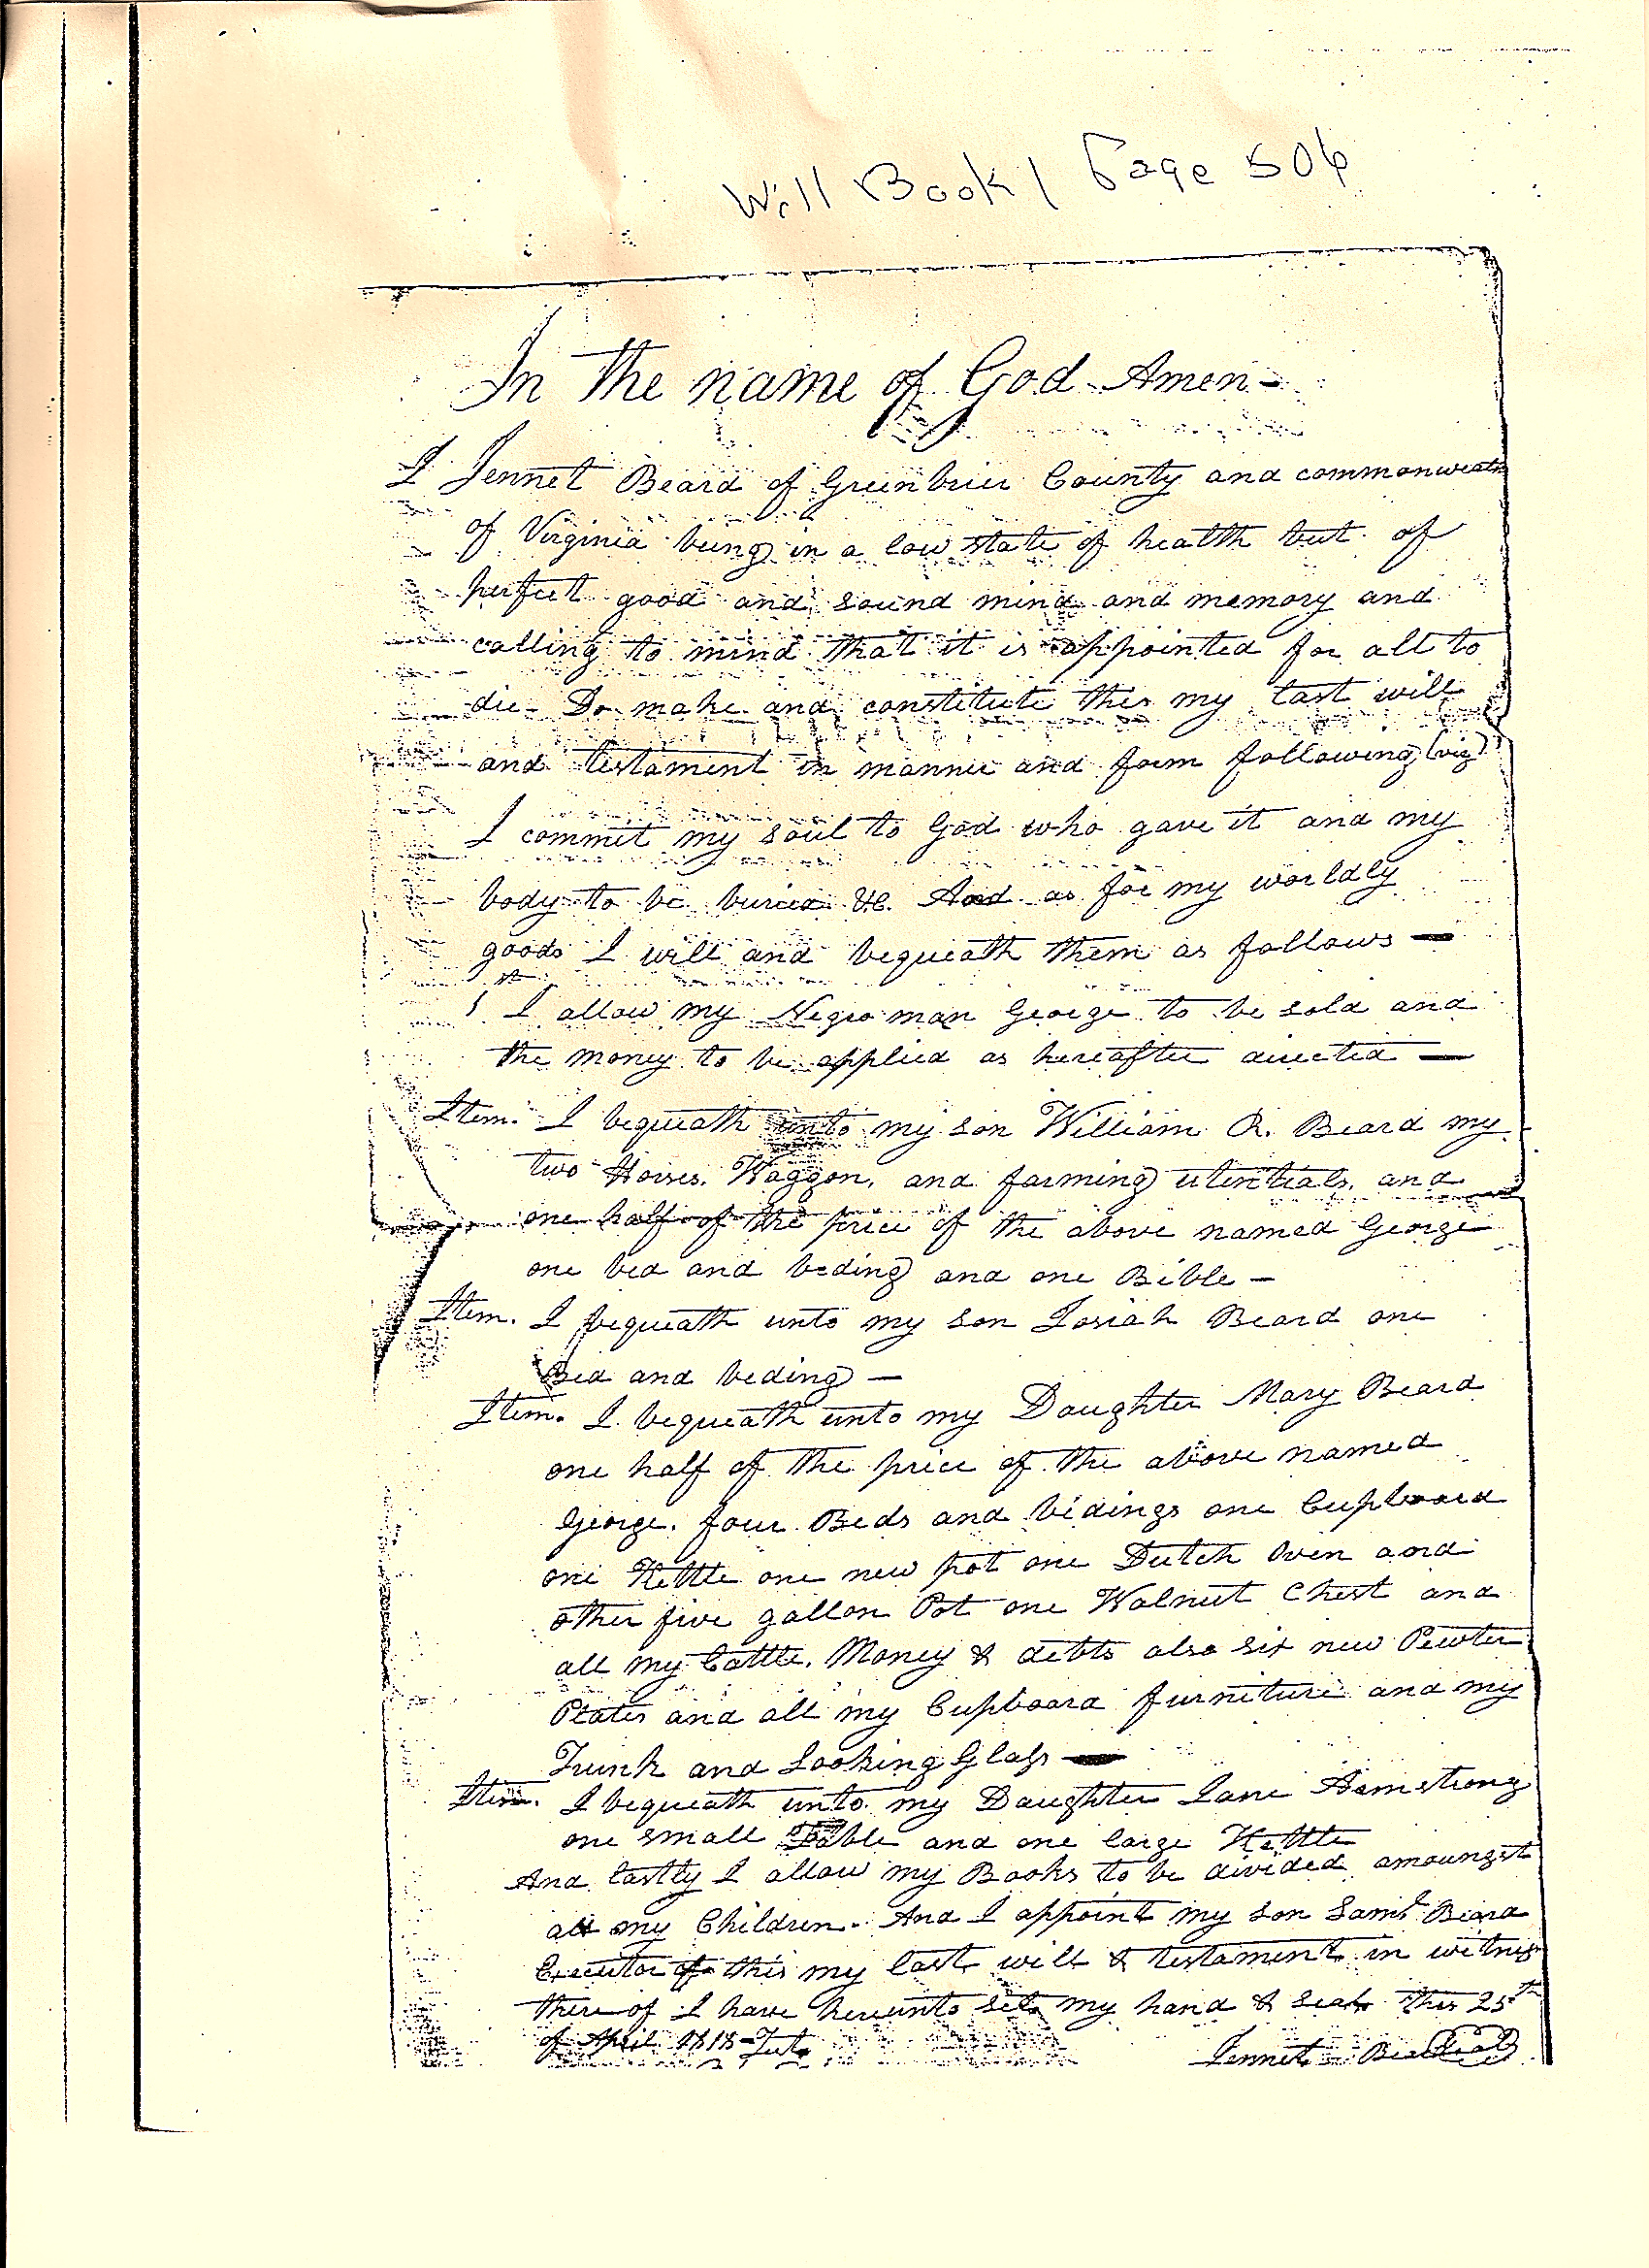 Will Book 1 Page 506
In the name of God Amen-
I Jennet Beard of Greenbrier County and commonwealth
of Virginia being in a low state of health but of
perfect good and sound mind and memory and
calling to mind that it is appointed for all to
die- Do make and constitute this my last will
and testament in manner and form following (viz)
I commit my soul to God who gave it and my
body to be buried &c. And as for my worldly
goods I will and bequeath them as follows —
1st I allow my Negro man George to be sold and
the money to be applied as hereafter directed —
Item. I bequeath unto my son William R. Beard my
two Horses, Waggon, and farming utentials, and
one half of the price of the above named George
one bed and beding and one Bible -
Item. I bequeath unto my son Josiah Beard one
Bed and beding —
Item. I bequeath unto my Daughter Mary Beard
one half of the price of the above named
George. four Beds and bidings one Cupboard
one Kettle one new pot one Dutch Oven and
other five gallon Pot one Walnut Chest and
all my Cattle, Money & debts also six new Pewter
Plates and all my Cupboard furniture and my
Trunk and Looking Glass —
Item. I bequeath unto my Daughter Jane Armstrong
one small Table and one large Kettle
And lastly I allow my Books to be divided amoungst
all my Children. And I appoint my son Saml Beard
Executor of this my last will & testament in witness
there of I have hereunto set my hand & seal this 25th
of April 1818-
Jennet Beard Seal